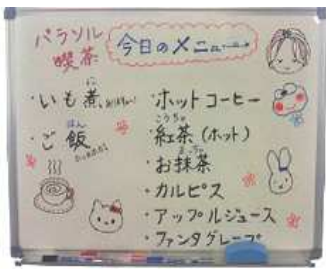 パラソル
喫茶
今日のメニュー
・いも煮
・ご飯
・ホットコーヒー
・紅茶(ホット)
・お抹茶
・カルピス
・アップルジュース
・ファンタグレープ